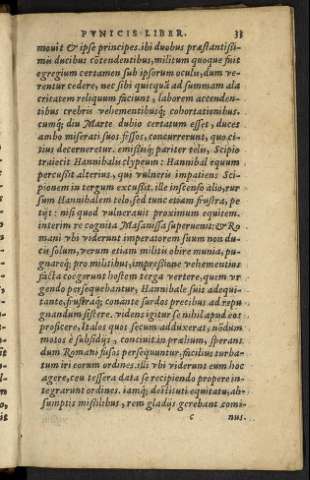 PVNICIS LIBER. 33
mouit & ipse principes. ibi duobus præstantissi-
mis ducibus cōtendentibus, militum quoque fuit
egregium certamen sub ipsorum oculis, dum ve-
rentur cedere, nec sibi quicquā ad summam ala
critatem reliquum faciunt, laborem accenden-
tibus crebris vehementibusq́; cohortationibus.
cumq́; diu Marte dubio certatum esset, duces
ambo miserati suos fessos, concurrerunt, quo ci-
tius decerneretur. emissisq́; pariter telis, Scipio
traiecit Hannibalis clypeum: Hannibal equum
percussit alterius, qui vulneris impatiens Sci-
pionem in tergum excussit. ille inscenso alio, rur
sum Hannibalem telo, sed tunc etiam frustra, pe
tijt: nisi quod vulnerauit proximum equitem.
interim re cognita Masanissa superuenit: & Ro
mani vbi viderunt imperatorem suum non du-
cis solum, verum etiam militis obire munia, pu-
gnareq́; pro militibus, impressione vehementius
facta coegerunt hostem terga vertere, quem vr
gendo persequebantur, Hannibale suis adequi-
tante, frustraq́; conante surdos precibus ad repu
gnandum sistere. videns igitur se nihil apud eos
proficere, Italos quos secum adduxerat, nōdum
motos è subsidijs, conciuit in prælium, sperans
dum Romani fusos persequuntur. facilius turba-
tum iri eorum ordines. illi vbi viderunt eum hoc
agere, ceu tessera data se recipiendo propere in-
tegrarunt ordines. iamq́; destituti equitatu, ab-
sumptis missilibus, rem gladijs gerebant comi-
c nus.